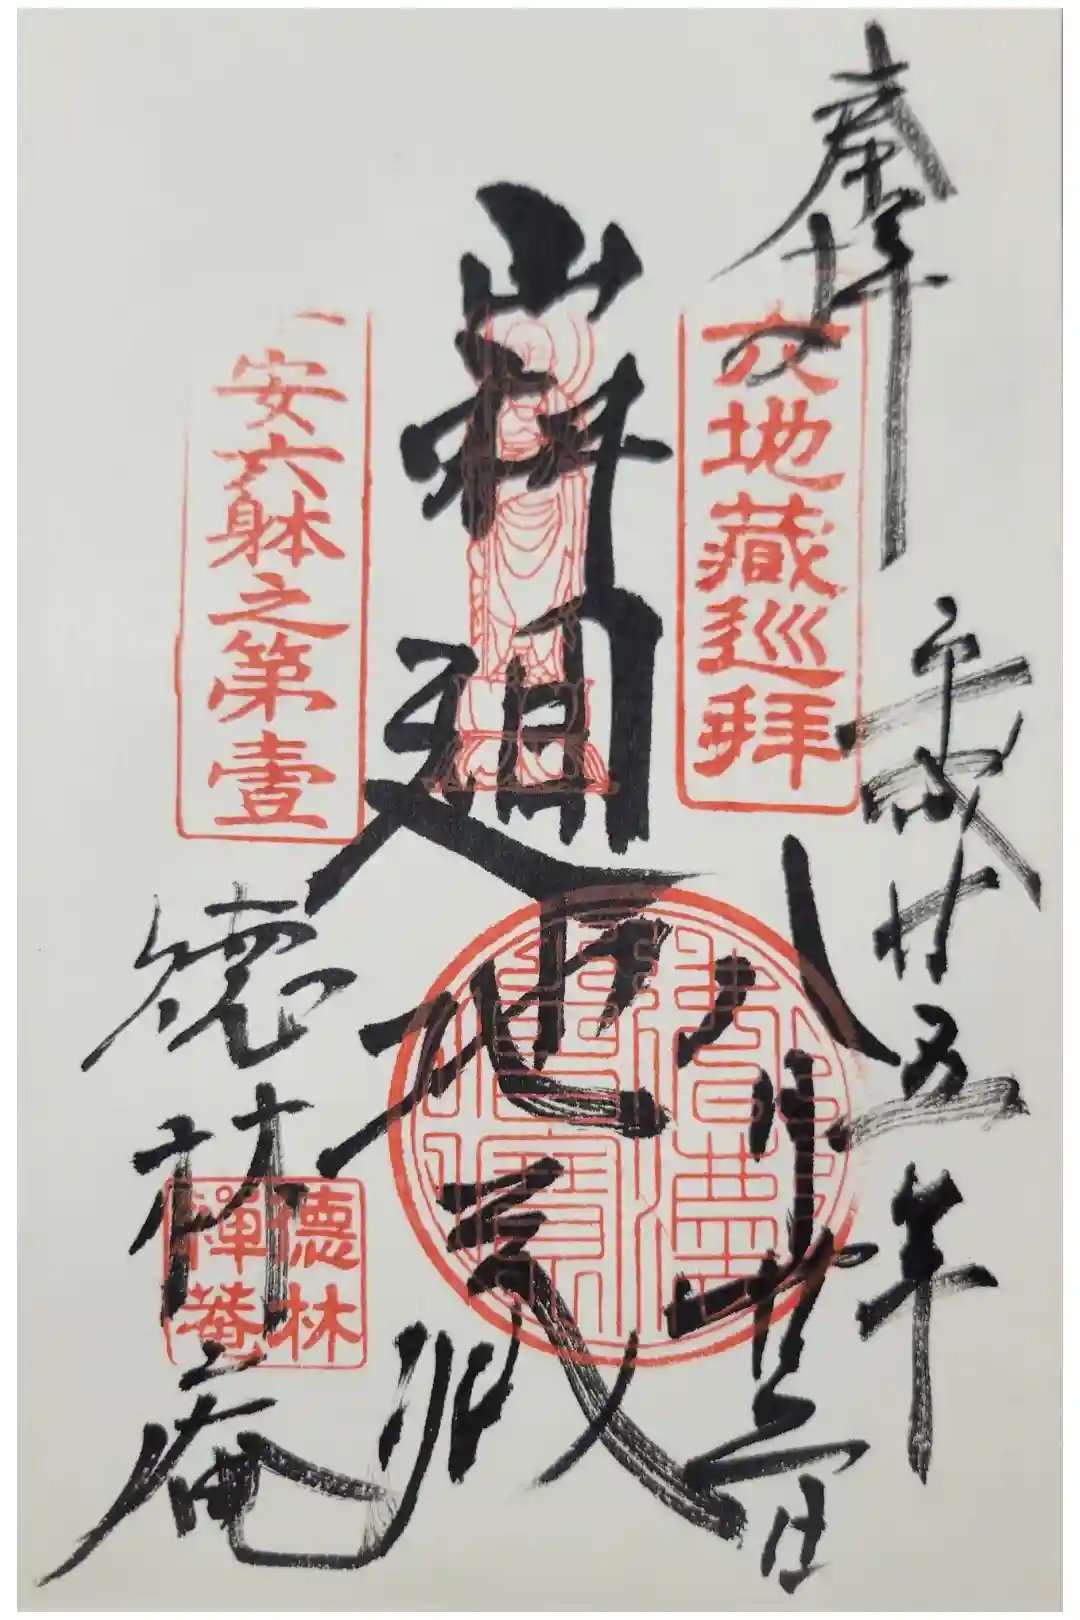 奉拝
平成廿五年
八月廿三日
六地藏巡拜
山科廻地蔵
安六躰之第壹
德林庵
德林
禅菴